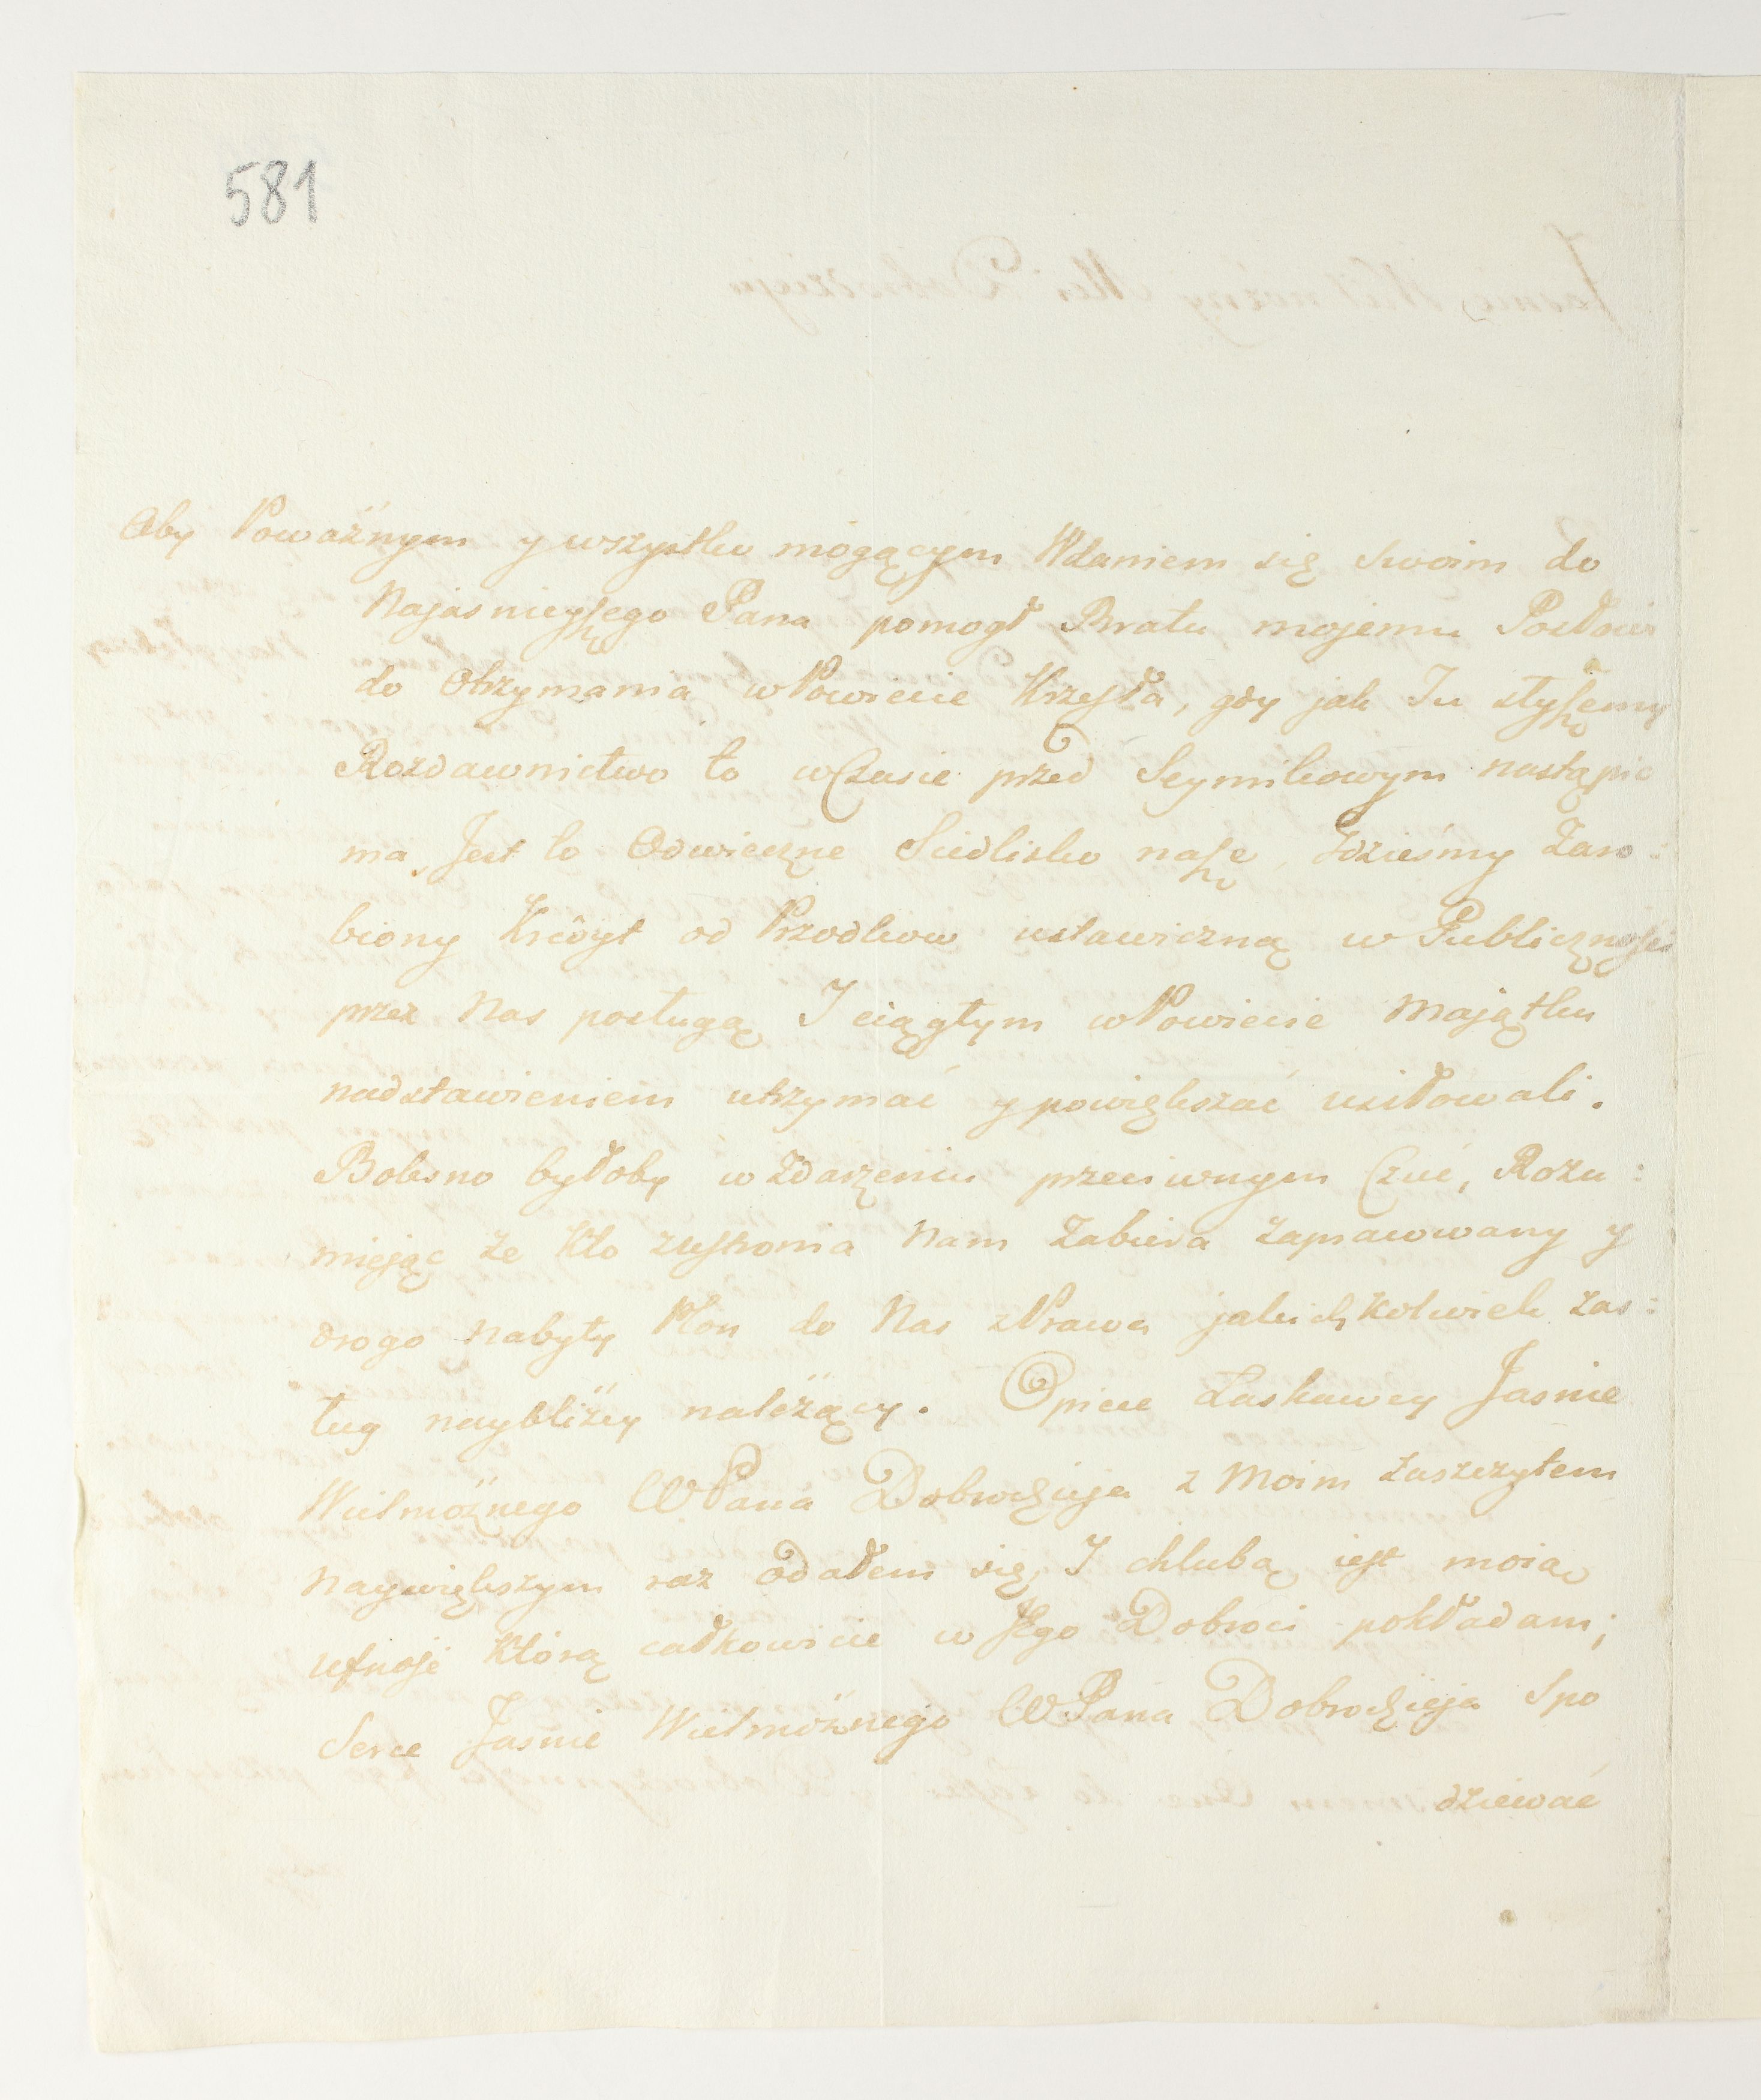 581
Aby Poważnym y wszystko mogącym Wdaniem się Swoim do
Najasnieyszego Pana pomogł Bratu mojemu Posłowi
do Otrzymania w Powiecie Krzesła, gdy jak Tu słyszemy
Rozdawnictwo to w Czasie przed Seymikowym nastąpic
ma, Jest to Odwieczne Siedlisko nasze, Gdzieśmy Zaro:
biony Kredyt od Przodkow ustawiczną w Publicznosci
przez Nas posługą, I ciągłym w Powiecie Majątku
nadstawieniem utrzymać y powiększać usiłowali.
Bolesno byłoby w Zdarzeniu przeciwnym Czuć, Rozu:
miejąc że Kto zustronia Nam Zabiera Zapracowany y
drogo Nabyty Plon do Nas z Prawa jakichkolwiek Zas:
ług nayblizey nalezący. Opiece Łaskawey Jasnie
Wielmożnego WPana Dobrodzieja z Moim Zaszczytem
Naywiększym raz Oddałem się, I chlubą iest moią
ufnosc Którą całkowicie w Jego Dobroci pokładam;
Serce Jasnie Wielmożnego WPana Dobrodzieja Spo
dziewać